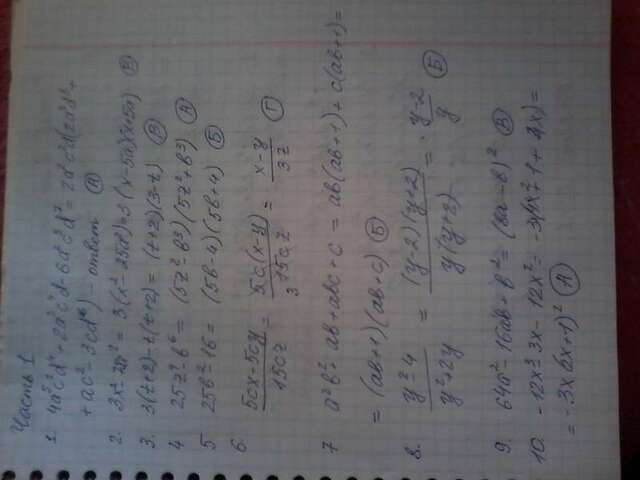 Часть 1
1. 4a⁵cd⁴ + 2a³c⁴d - 6a²c²d⁷ = 2a²cd(2a³d³ +
+ ac³ - 3cd⁶) - ответ А
2. 3x² - 75a² = 3(x² - 25a²) = 3(x-5a)(x+5a) В
3. 3(t+2) - t(t+2) = (t+2)(3-t) В
4 25z² - b⁶ = (5z - b³)(5z + b³) А
5 25b² - 16 = (5b-4)(5b+4) Б
6. (5cx - 5cy)/15cz = 5c(x-y)/15cz = (x-y)/3z Г
7 a²b² + ab + abc + c = ab(ab+1) + c(ab+1) =
= (ab+1)(ab+c) Б
8. (y²-4)/(y²+2y) = (y-2)(y+2)/y(y+2) = (y-2)/y Б
9. 64a² - 16ab + b² = (8a - b)² В
10. -12x³ - 3x - 12x² = -3x(4x² + 1 + 4x) =
= -3x(2x+1)² А